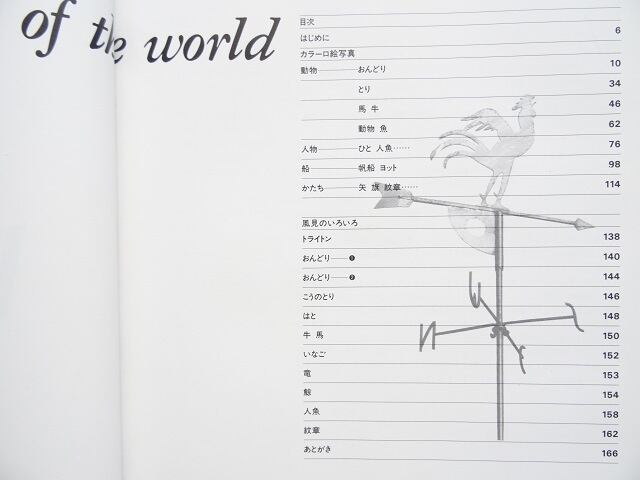 of the world
目次
はじめに 6
カラー口絵写真
動物 おんどり 10
とり 34
馬 牛 46
動物 魚 62
人物 ひと 人魚…… 76
船 帆船 ヨット 98
かたち 矢 旗 紋章…… 114
風見のいろいろ
トライトン 138
おんどり ❶ 140
おんどり ❷ 144
こうのとり 146
はと 148
牛 馬 150
いなご 152
竜 153
鯨 154
人魚 158
紋章 162
あとがき 166
W
N